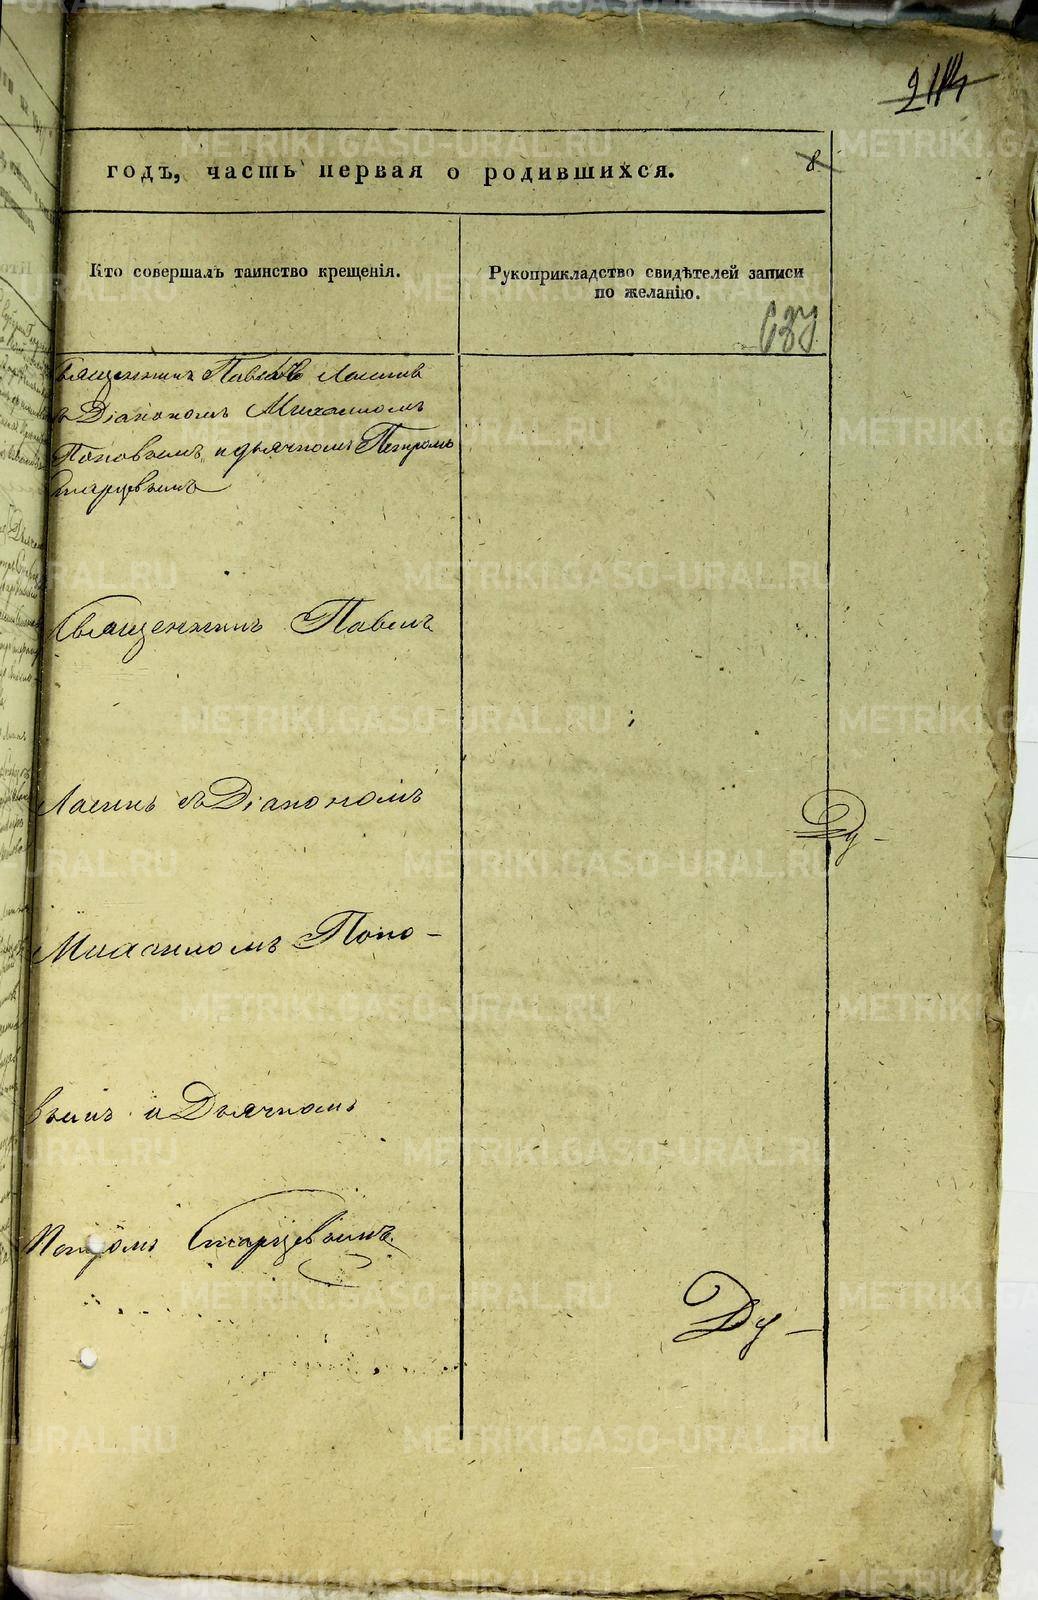 годъ, часть первая о родившихся.
8
Кто совершалъ таинство крещенія.
Рукоприкладство свидѣтелей записи
по желанію.
637
Священникъ Павелъ
съ Діакономъ Михаиломъ
Поповымъ и дьячкомъ Петромъ
Старцевымъ
Священникъ Павелъ
Ласинъ съ Діакономъ
Михаиломъ Попо-
вымъ и Дьячкомъ
Петромъ Старцевымъ.
Ду-
Ду-
METRIKI.GASO-URAL.RU